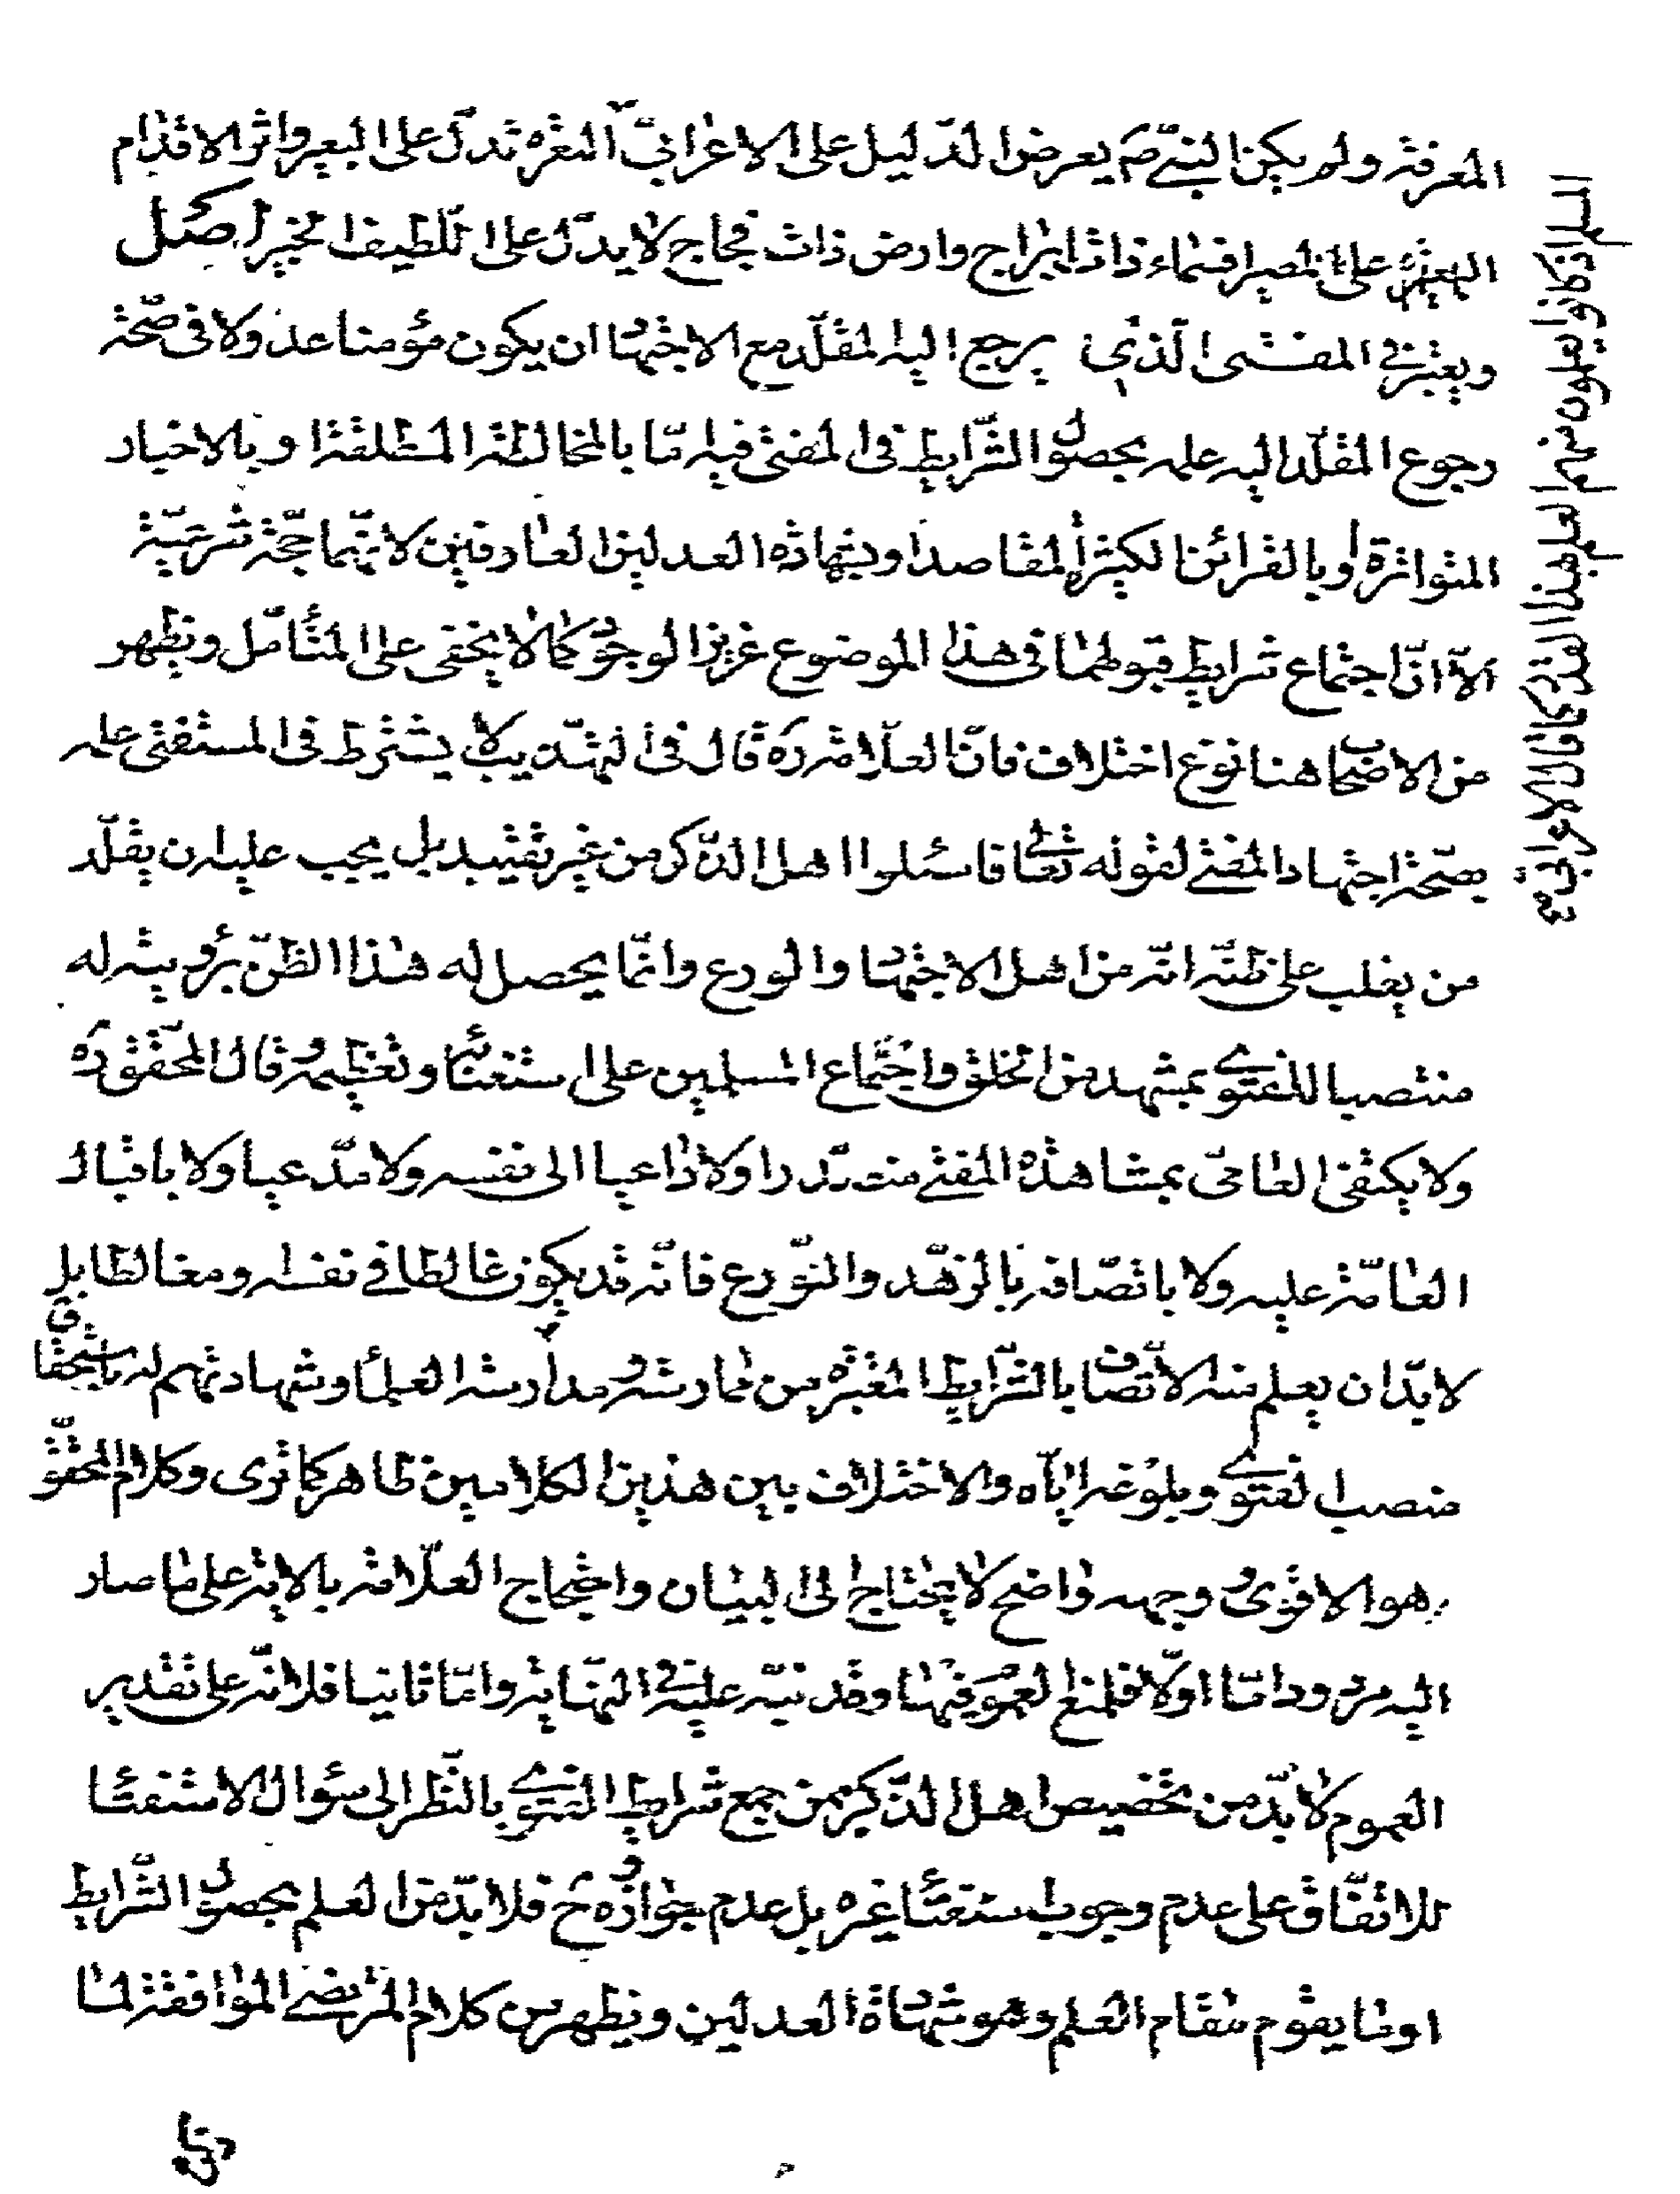 المعرفة ولم يكن النبي ص م يعرض الدليل على الاعرابي البعرة تدل على البعير واثر الاقدام
على المصير افسماء ذات ابراج وارض ذات فجاج لا يدلان على اللطيف الخبير اصل
ويعتبر في المفتى الذي يرجع اليه المقلد مع الاجتهاد ان يكون مؤمنا عدلا وفى صحة
رجوع المقلد اليه علمه بحصول الشرايط فى المفتى فيه اما بالمخالطة المطلعة او بالاخبار
المتواترة او بالقرائن الكثيرة المتعاضدة او بشهادة العدلين العارفين لانهما حجة شرعية
الا ان اجتماع شرايط قبولهما فى هذا الموضوع عزيز الوجود كما لا يخفى على المتأمل ويظهر
من الاصحاب هنا نوع اختلاف فان العلامة ره قال فى التهذيب لا يشترط فى المستفتى علمه
بصحة اجتهاد المفتي لقوله تعالى فاسئلوا اهل الذكر من غير تقييد بل يجب عليه ان يقلد
من يغلب على ظنه انه من اهل الاجتهاد والورع وانما يحصل له هذا الظن برؤيته له
منتصبا للفتوى بمشهد من الخلق واجتماع المسلمين على استفتائه وتعظيمه وقال المحقق ره
ولا يكتفى العامي بمشاهدة المفتي متصدرا ولا داعيا الى نفسه ولا مدعيا ولا باقبال
العامة عليه ولا باتصافه بالزهد والتورع فانه قد يكون غالطا في نفسه او مغالطا بل
لا بد ان يعلم منه الاتصاف بالشرايط المعتبرة من ممارسته وممارسة العلماء وشهادتهم له باستحقاق
منصب الفتوى وبلوغه اياه والاختلاف بين هذين الكلامين ظاهر كما ترى وكلام المحقق
هو الاقوى ووجهه واضح لا يحتاج الى البيان واحتجاج العلامة بالاية على ما صار
اليه مردود اما اولا فلمنع العموم فيها وقد نبه عليه في النهاية واما ثانيا فلانه على تقدير
العموم لا بد من تخصيص اهل الذكر بمن جمع شرايط الفتوى بالنظر الى سؤال الاستفتاء
للاتفاق على عدم وجوب استفتاء غيره بل عدم جوازه وح فلا بد من العلم بحصول الشرايط
او ما يقوم مقام العلم وهو شهادة العدلين ويظهر من كلام المرتضى الموافقة لما
المسلم اذ كانوا يعلمون منهم العلم بهذا القدر كما قال الاعرابي